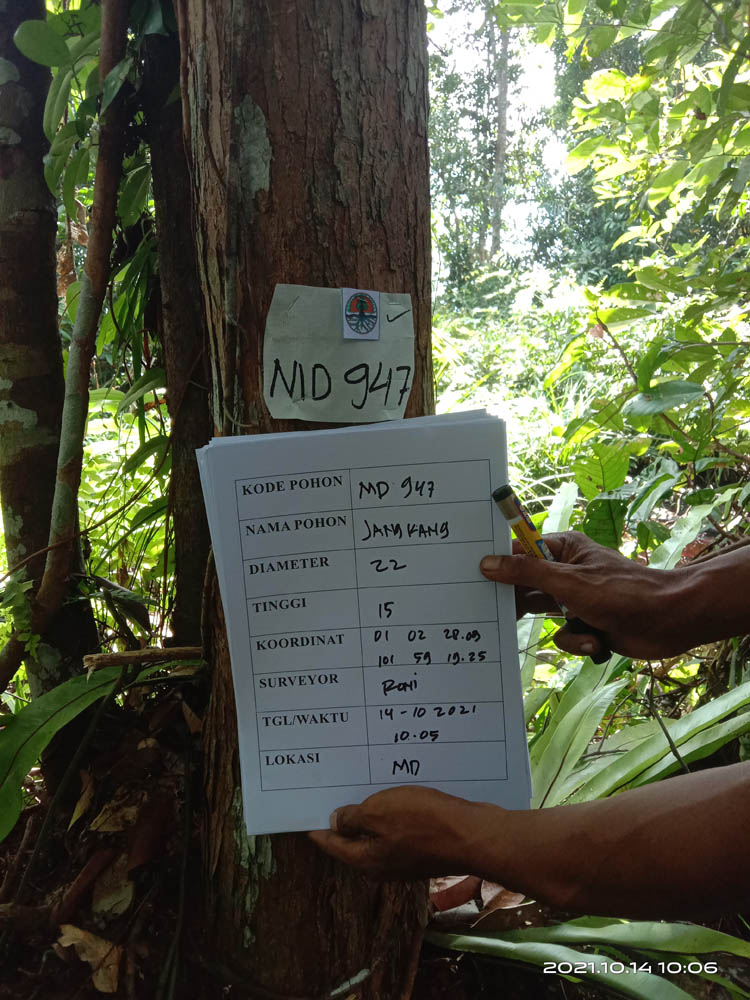 MD 947
KODE POHON MD 947
NAMA POHON JANGKANG
DIAMETER 22
TINGGI 15
KOORDINAT 01 02 28.09
101 59 19.25
SURVEYOR Roni
TGL/WAKTU 14-10 2021
10.05
LOKASI MD
2021.10.14 10:06